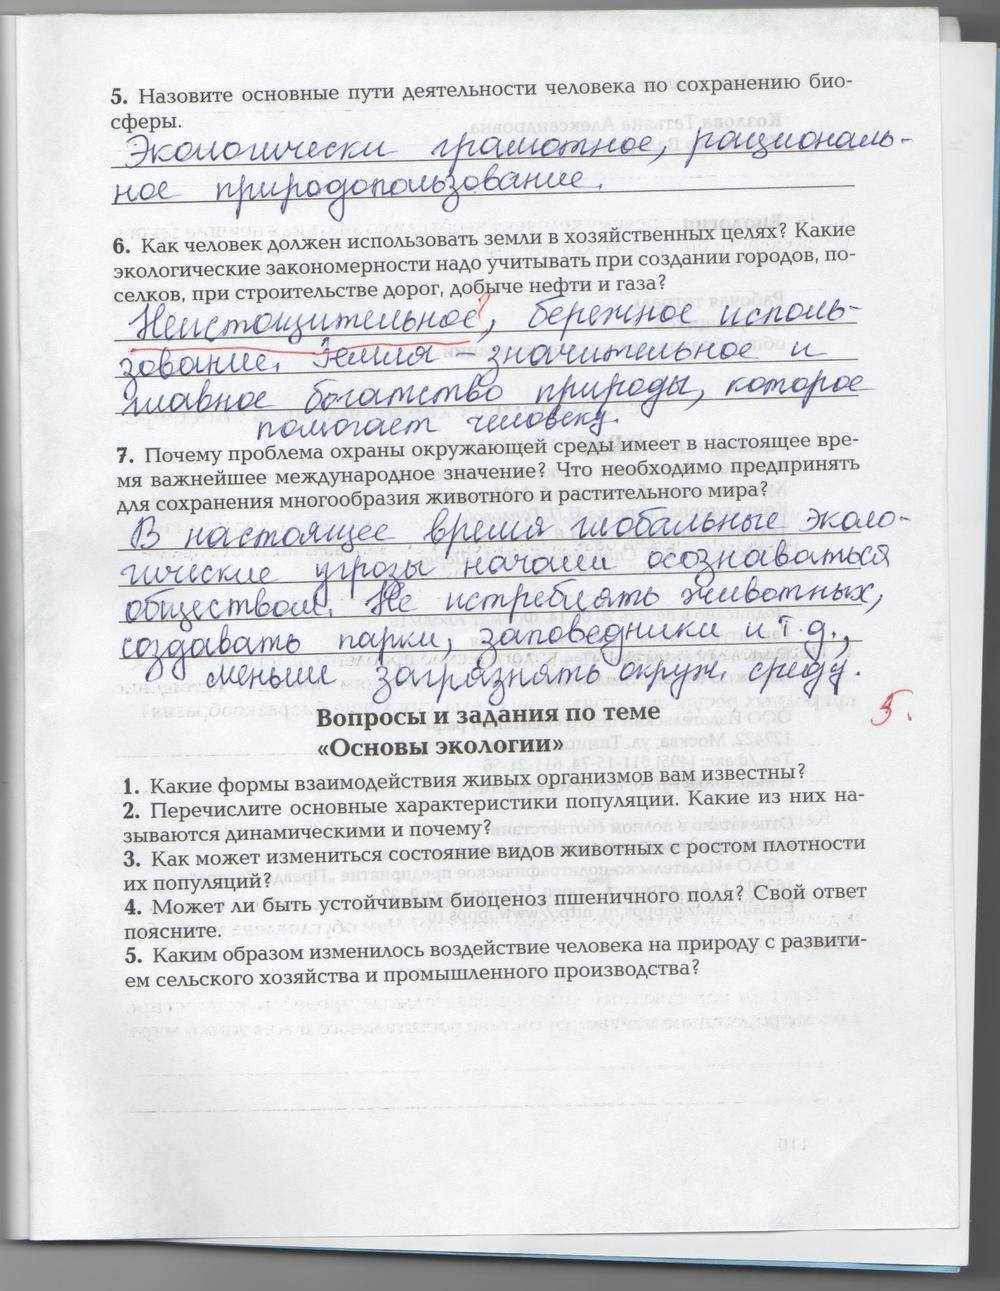 5. Назовите основные пути деятельности человека по сохранению био-
сферы.
Экологически грамотное, рациональ-
ное природопользование.
6. Как человек должен использовать земли в хозяйственных целях? Какие
экологические закономерности надо учитывать при создании городов, по-
селков, при строительстве дорог, добыче нефти и газа?
Неистощительное?, бережное исполь-
зование. Земля – значительное и
главное богатство природы, которое
помогает человеку.
7. Почему проблема охраны окружающей среды имеет в настоящее вре-
мя важнейшее международное значение? Что необходимо предпринять
для сохранения многообразия животного и растительного мира?
В настоящее время глобальные эколо-
гические угрозы начали осознаваться
обществом. Не истреблять животных,
создавать парки, заповедники и т.д.,
меньше загрязнять окруж. среду.
5.
Вопросы и задания по теме
«Основы экологии»
1. Какие формы взаимодействия живых организмов вам известны?
2. Перечислите основные характеристики популяции. Какие из них на-
зываются динамическими и почему?
3. Как может измениться состояние видов животных с ростом плотности
их популяций?
4. Может ли быть устойчивым биоценоз пшеничного поля? Свой ответ
поясните.
5. Каким образом изменилось воздействие человека на природу с развити-
ем сельского хозяйства и промышленного производства?